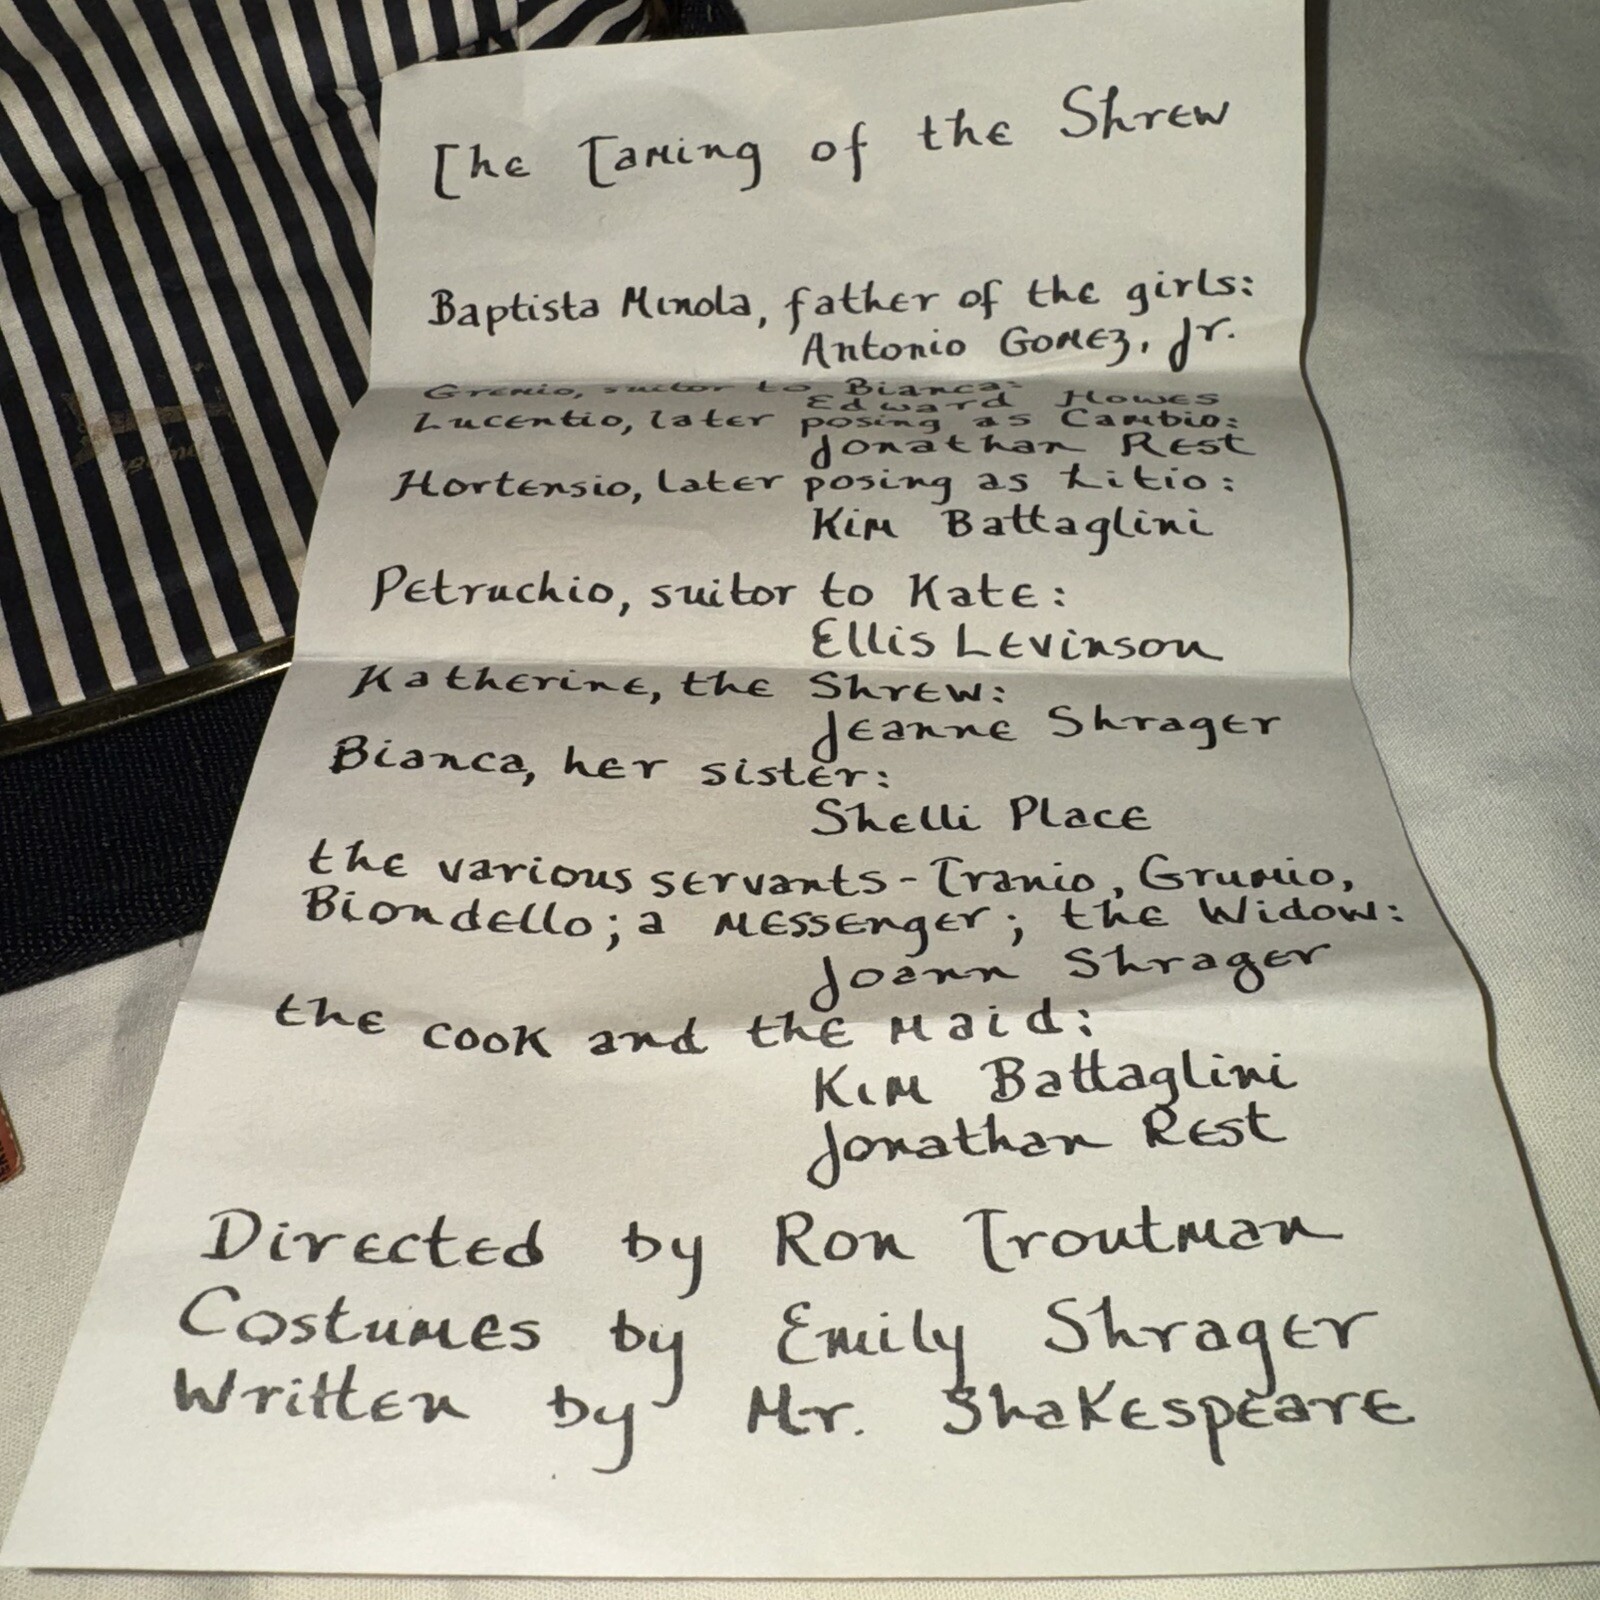 The Taming of the Shrew
Baptista Minola, father of the girls:
Antonio Gomez, Jr.
Gremio, suitor to Bianca:
Edward Howes
Lucentio, later posing as Cambio:
Jonathan Rest
Hortensio, later posing as Litio:
Kim Battaglini
Petruchio, suitor to Kate:
Ellis Levinson
Katherine, the Shrew:
Jeanne Shrager
Bianca, her sister:
Shelli Place
the various servants - Tranio, Grumio,
Biondello; a messenger; the Widow:
Joann Shrager
the cook and the maid:
Kim Battaglini
Jonathan Rest
Directed by Ron Troutman
Costumes by Emily Shrager
Written by Mr. Shakespeare